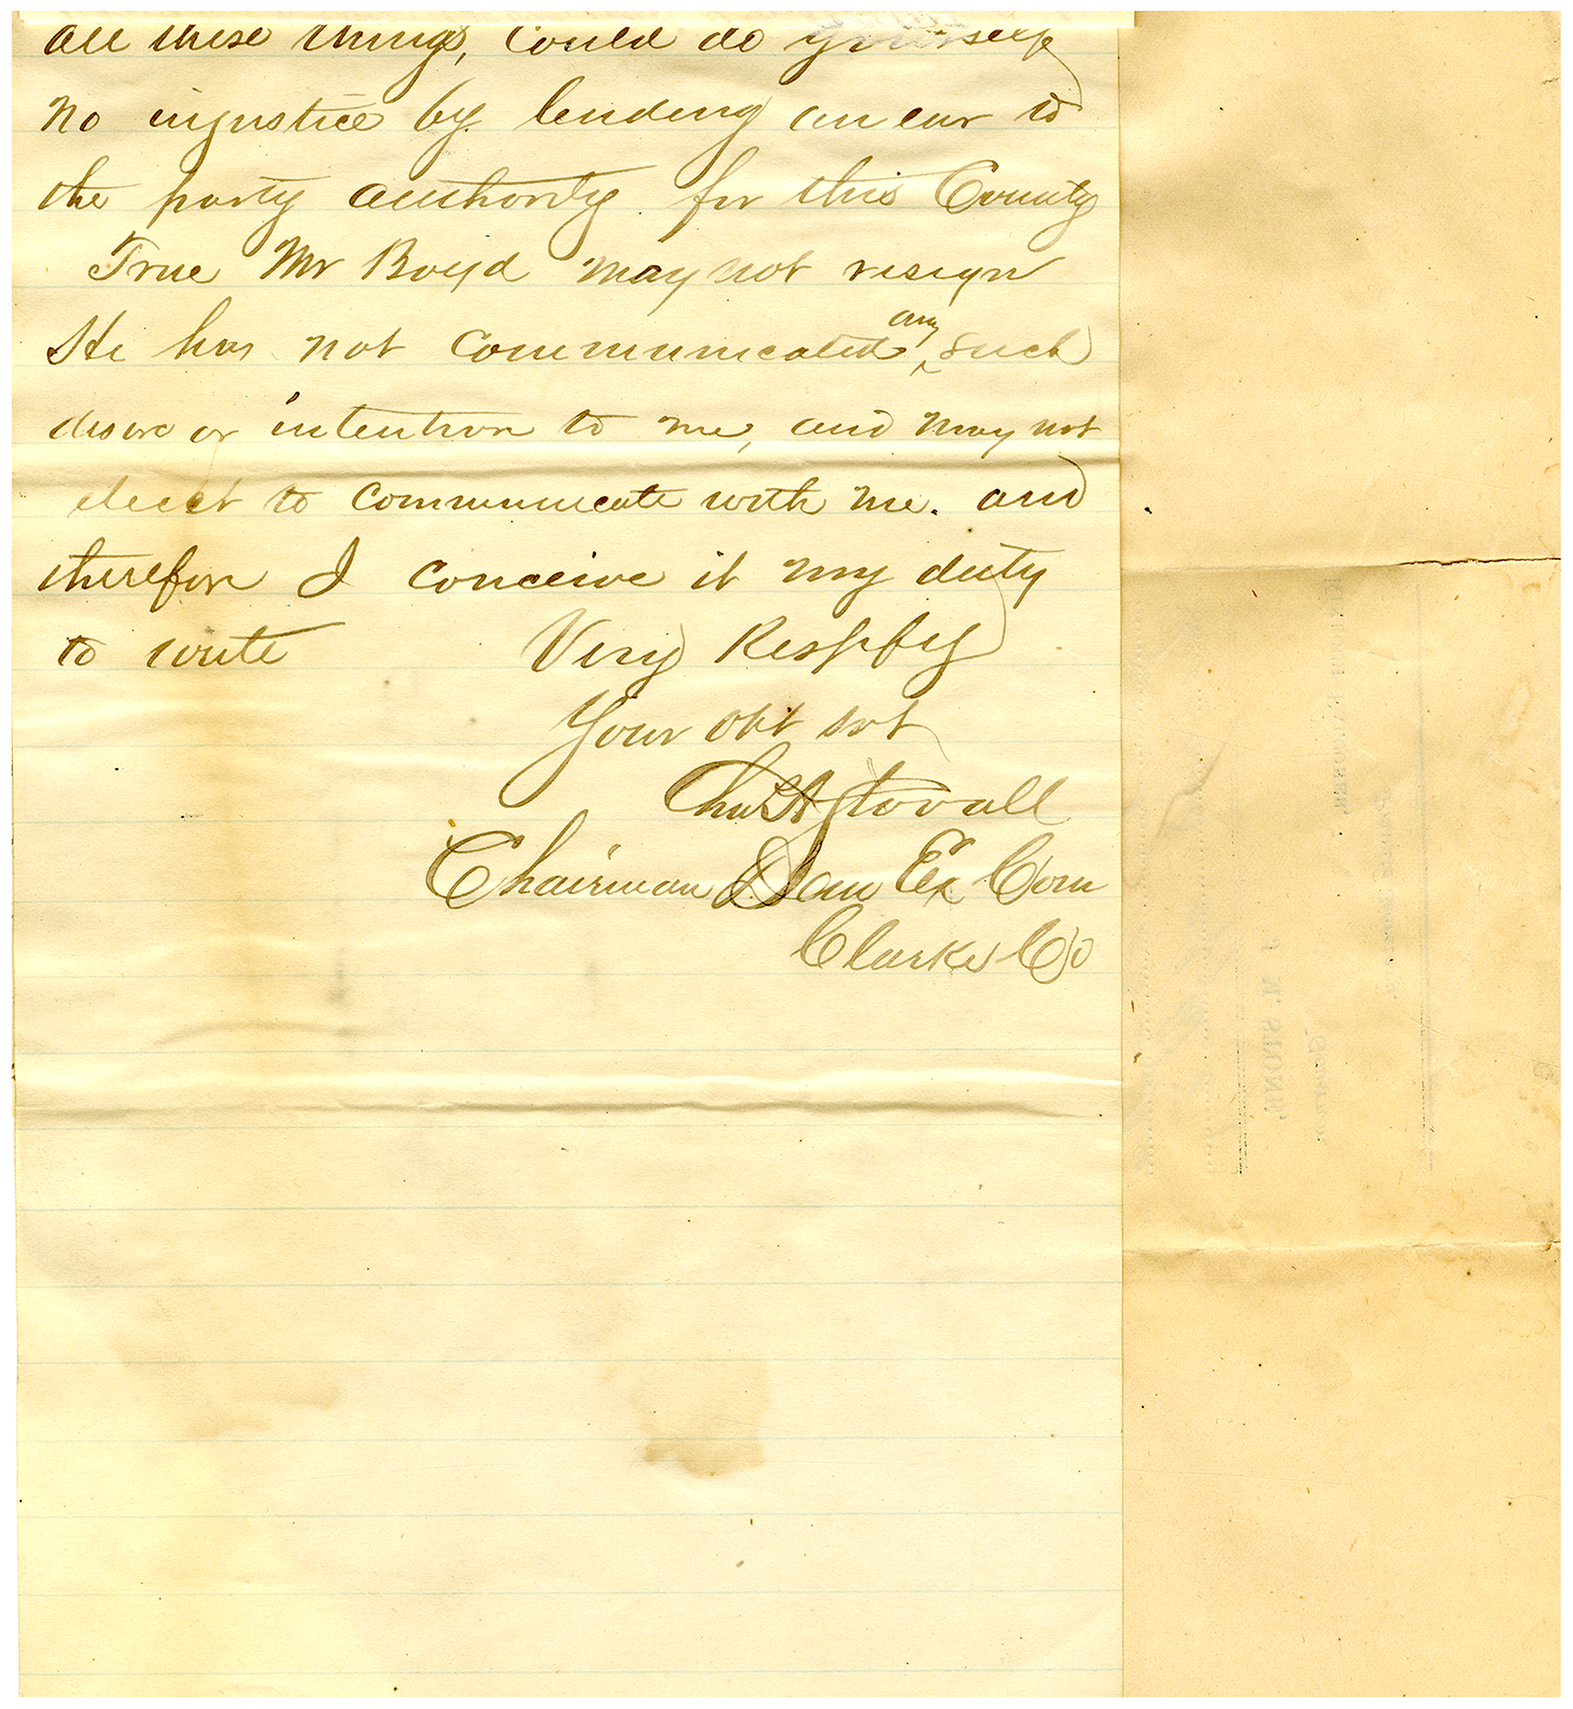 all these things, could do yourself
no injustice by lending an ear to
the party authority for this County
True Mr Boyd may not resign
He has not communicated any such
desire or intention to me, and may not
elect to communicate with me. and
therefore I conceive it my duty
to write Very Respfly
Your obt svt
Chas A Stovall
Chairman Dem Ex Com
Clarke Co